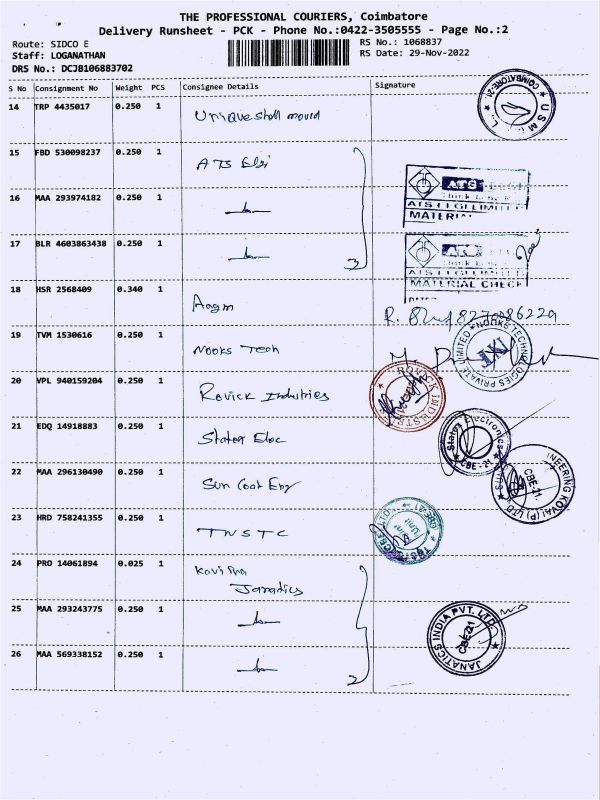 THE PROFESSIONAL COURIERS, Coimbatore
Delivery Runsheet - PCK - Phone No.:0422-3505555 - Page No.:2
Route: SIDCO E
RS No.: 1068837
Staff: LOGANATHAN
RS Date: 29-Nov-2022
DRS No.: DCJB106883702
S No Consignment No Weight PCS Consignee Details Signature
14 TRP 4435017 0.250 1 Unique shell mould
COIMBATORE-21 ★ U S M
15 FBD 530098237 0.250 1 ATS Elgi
ATS
ATS ELGI LIMITED
MATERIAL
16 MAA 293974182 0.250 1
17 BLR 4603863438 0.250 1
3
ATS ELGI LIMITED
MATERIAL CHECK
18 HSR 2568409 0.340 1 Aagm
R.
19 TVM 1530616 0.250 1 Nooks Tech
NOOKS TECHNOLOGIES PRIVATE LIMITED ★
20 VPL 940159204 0.250 1 Rovick Industries
ROVICK INDUSTRIES ★
21 EDQ 14918883 0.250 1 Stater Elec
Electronics
CBE-21
22 MAA 296130490 0.250 1 Sun Coat Eng
KOVAI (P) LTD
CBE-21.
23 HRD 758241355 0.250 1 TNSTC
24 PRO 14061894 0.025 1
Janatics
25 MAA 293243775 0.250 1
JANATICS INDIA PVT. LTD. ★
CBE-21
26 MAA 569338152 0.250 1
2